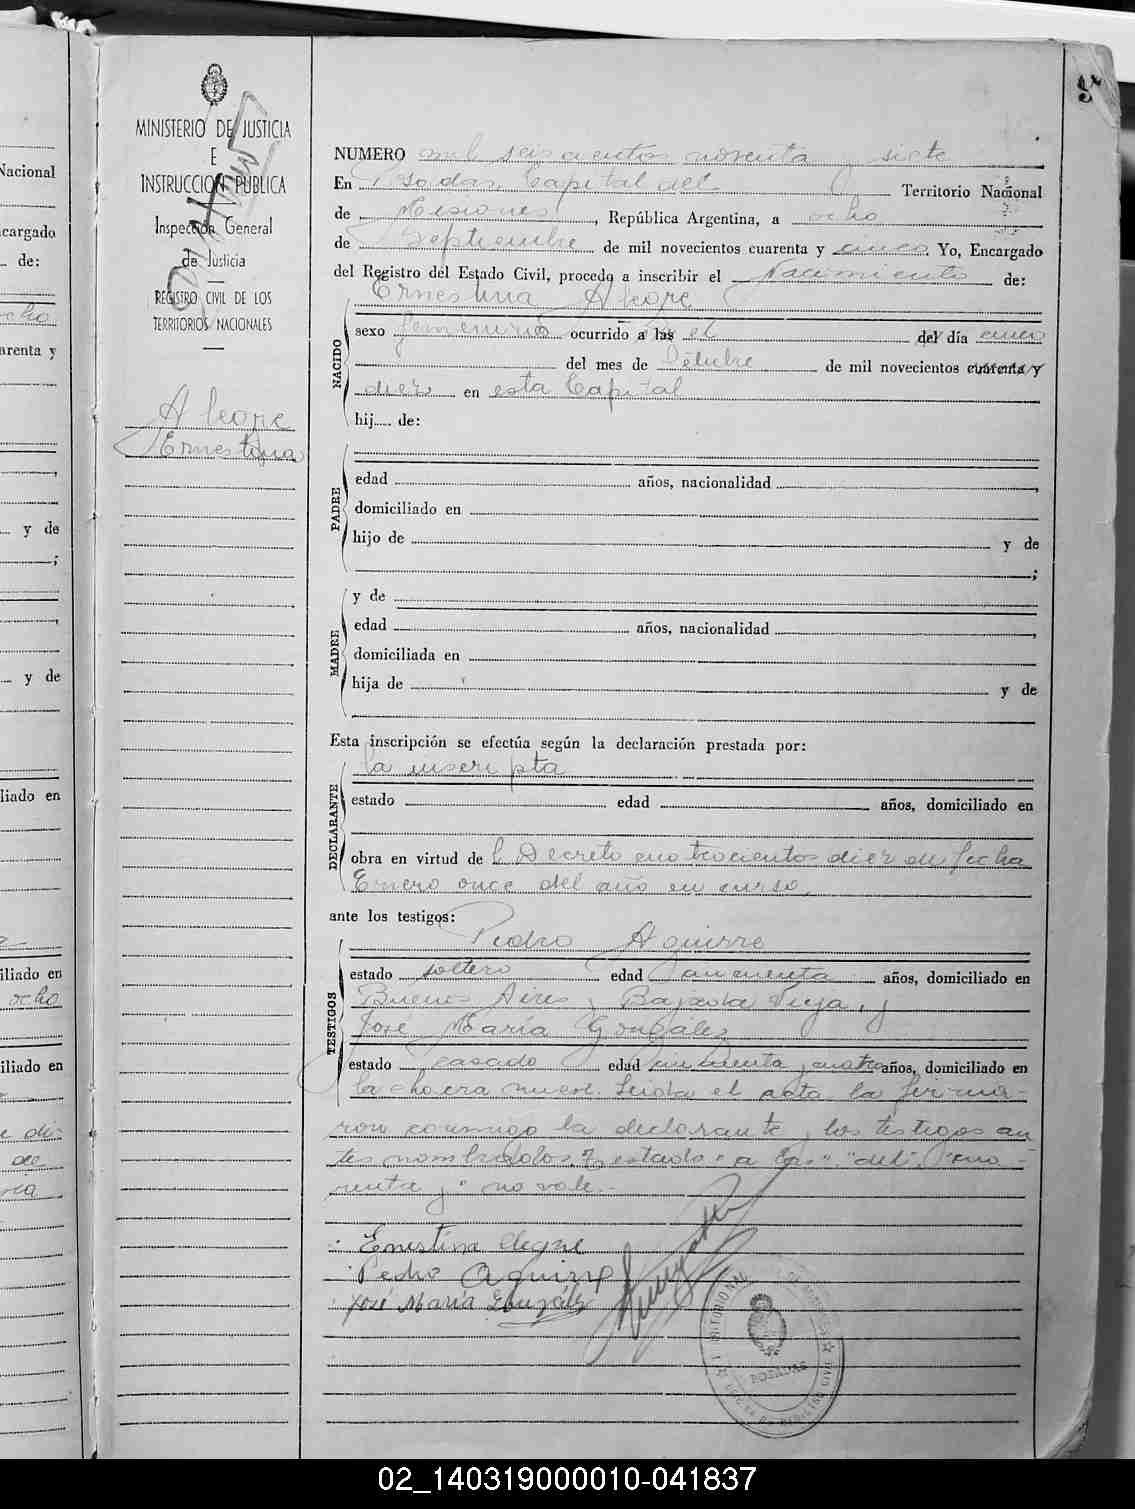 MINISTERIO DE JUSTICIA
E
INSTRUCCION PUBLICA
Inspección General
de Justicia
REGISTRO CIVIL DE LOS
TERRITORIOS NACIONALES
Alegre
Ernestina
NUMERO mil seiscientos noventa y siete
En Posadas Capital del Territorio Nacional
de Misiones, República Argentina, a ocho
de Septiembre de mil novecientos cuarenta y cinco. Yo, Encargado
del Registro del Estado Civil, procedo a inscribir el Nacimiento de:
NACIDO
Ernestina Alegre
sexo femenino ocurrido a las el del día cinco
del mes de Octubre de mil novecientos cuarenta y
diez en esta Capital
hij..... de:
PADRE
edad años, nacionalidad
domiciliado en
hijo de y de
;
MADRE
y de
edad años, nacionalidad
domiciliada en
hija de y de
Esta inscripción se efectúa según la declaración prestada por:
DECLARANTE
la inscripta
estado edad años, domiciliado en
obra en virtud de l Decreto cuatrocientos diez de fecha
Enero once del año en curso.
ante los testigos:
TESTIGOS
Pedro Aguirre
estado soltero edad cincuenta años, domiciliado en
Buenos Aires y Bajada Vieja, y
José María González
estado casado edad cincuenta y cuatro años, domiciliado en
la chacra nueve. Leida el acta la firma-
ron conmigo la declarante y los testigos an
tes nombrados. Testado "a las", "del", "cua-
renta y" no vale.-
Ernestina Alegre
Pedro Aguirre
José María González
POSADAS
Nacional
encargado
de:
ocho
arenta y
y de
;
y de
liado en
iliado en
ocho
iliado en
02_140319000010-041837